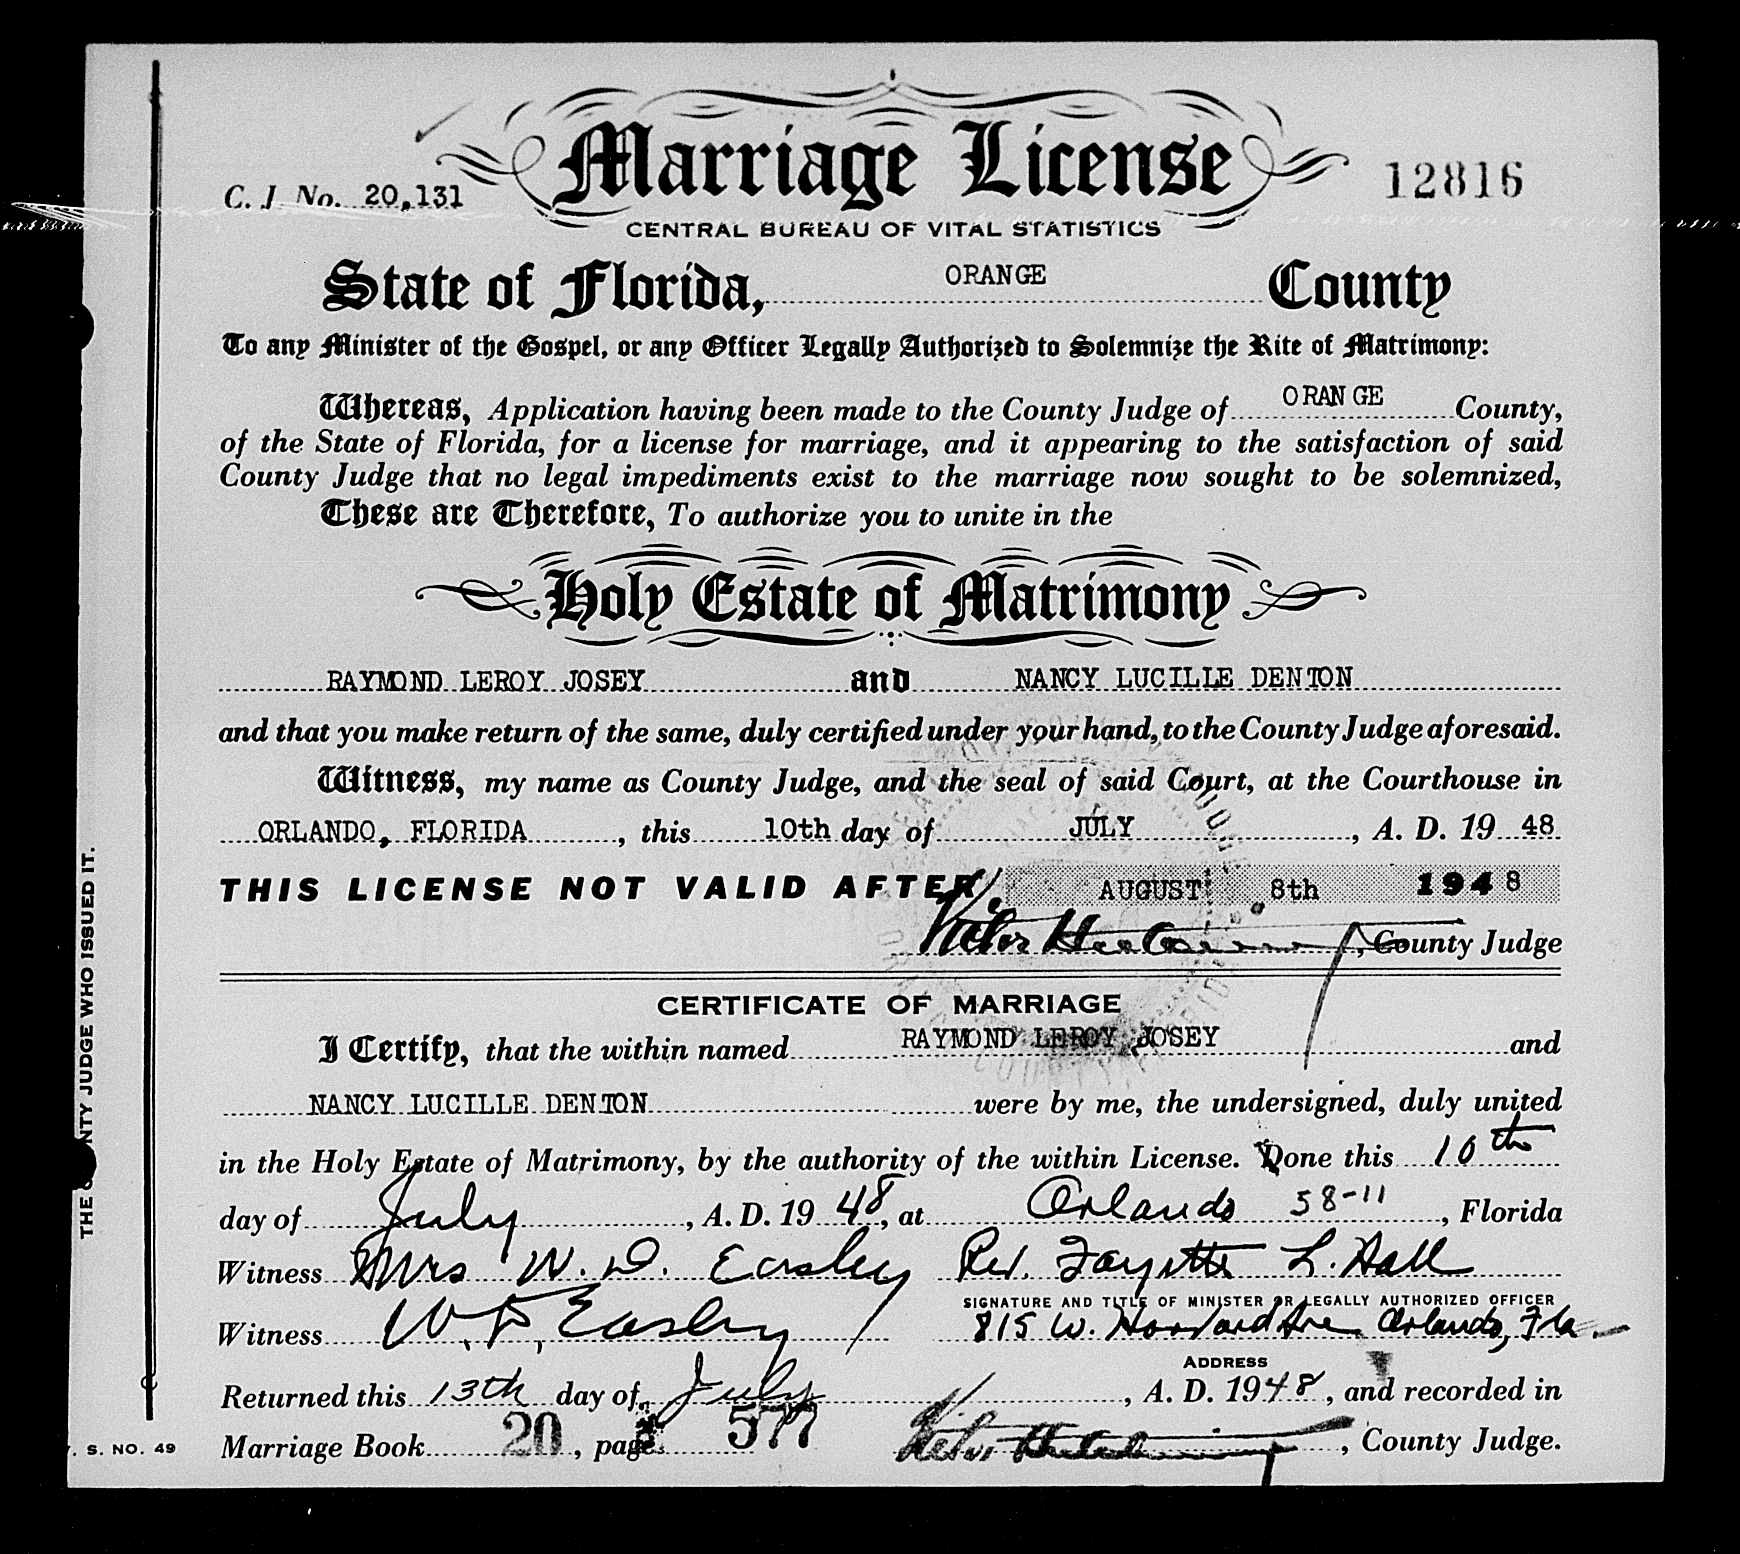 Marriage License
C. J. No. 20,131
12816
CENTRAL BUREAU OF VITAL STATISTICS
State of Florida, ORANGE County
To any Minister of the Gospel, or any Officer Legally Authorized to Solemnize the Rite of Matrimony:
Whereas, Application having been made to the County Judge of ORANGE County,
of the State of Florida, for a license for marriage, and it appearing to the satisfaction of said
County Judge that no legal impediments exist to the marriage now sought to be solemnized,
These are Therefore, To authorize you to unite in the
Holy Estate of Matrimony
RAYMOND LEROY JOSEY and NANCY LUCILLE DENTON
and that you make return of the same, duly certified under your hand, to the County Judge aforesaid.
Witness, my name as County Judge, and the seal of said Court, at the Courthouse in
ORLANDO, FLORIDA, this 10th day of JULY, A. D. 19 48
THIS LICENSE NOT VALID AFTER AUGUST 8th 1948
Victor Hutchins, County Judge
CERTIFICATE OF MARRIAGE
I Certify, that the within named RAYMOND LEROY JOSEY and
NANCY LUCILLE DENTON were by me, the undersigned, duly united
in the Holy Estate of Matrimony, by the authority of the within License. Done this 10th
day of July, A. D. 19 48, at Orlando 58-11, Florida
Witness Mrs W. D. Easley Rev. Fayette L. Hall
SIGNATURE AND TITLE OF MINISTER OR LEGALLY AUTHORIZED OFFICER
Witness W. D. Easley 815 W. Harvard Ave Orlando, Fla
ADDRESS
Returned this 13th day of July, A. D. 1948, and recorded in
Marriage Book 20, page 577, County Judge.
THE COUNTY JUDGE WHO ISSUED IT.
S. NO. 49